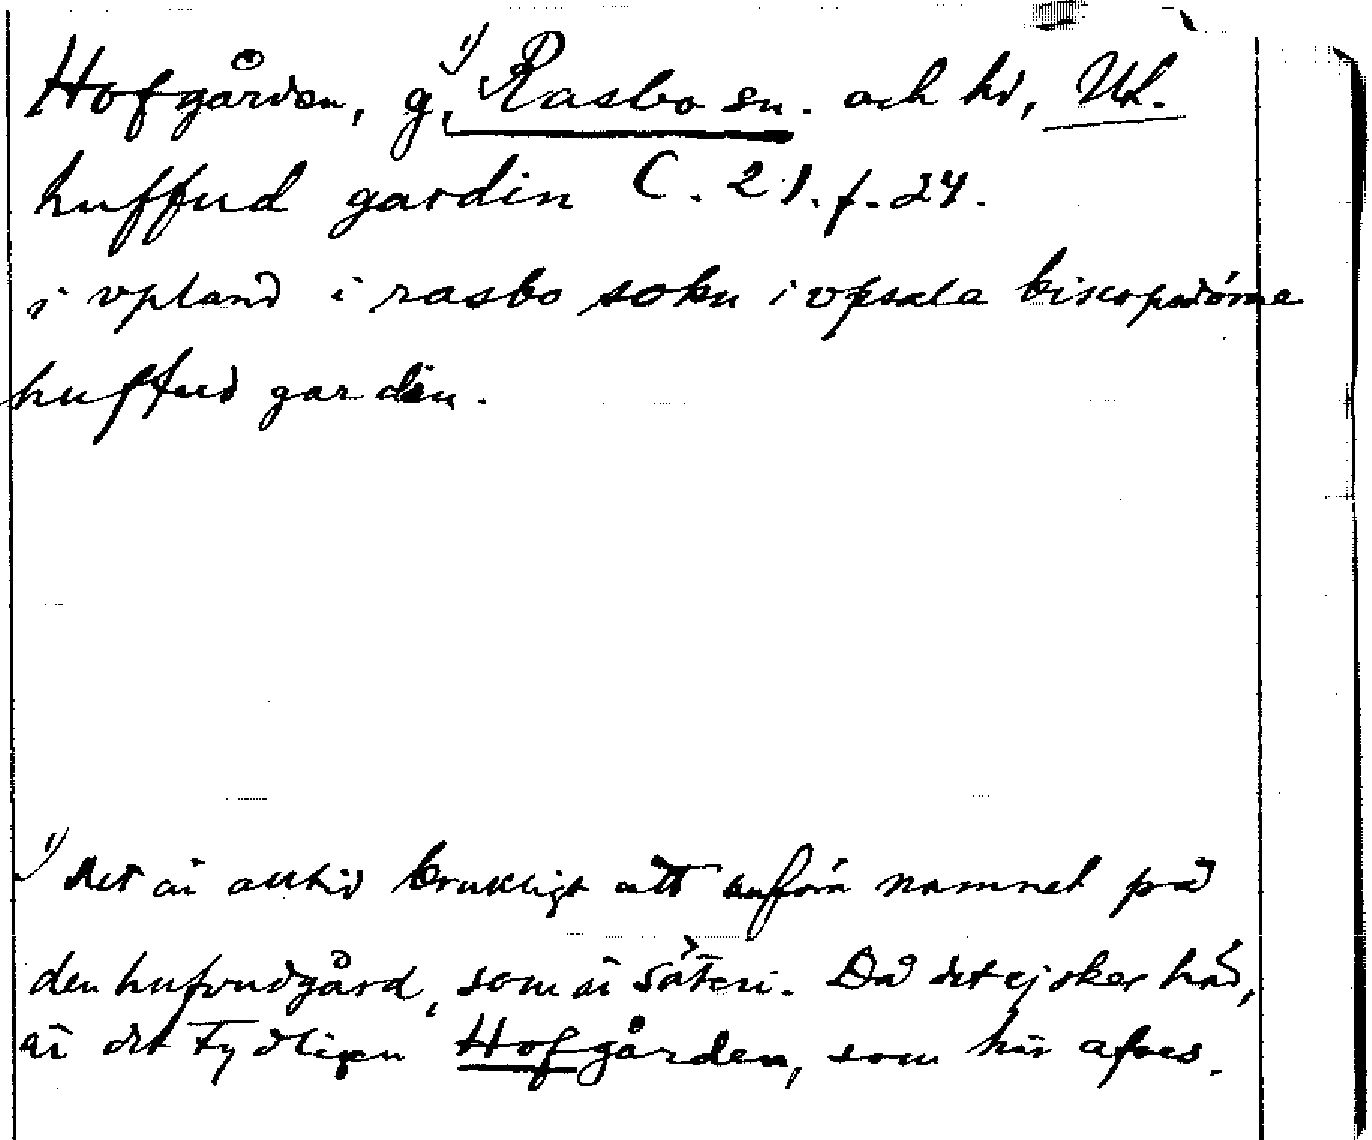 Hofgården, g,¹⁾ Rasbo sn. och hd, Upl.
huffud gardin C. 21. f. 24.
i vpland i rasbo sokn i vpsala biscopsdóme
huffud garden.
¹⁾ Det är alltid brukligt att anföra namnet på
den hufvudgård, som är säteri. Då det ej sker här,
är det tydligen Hofgården, som här afses.